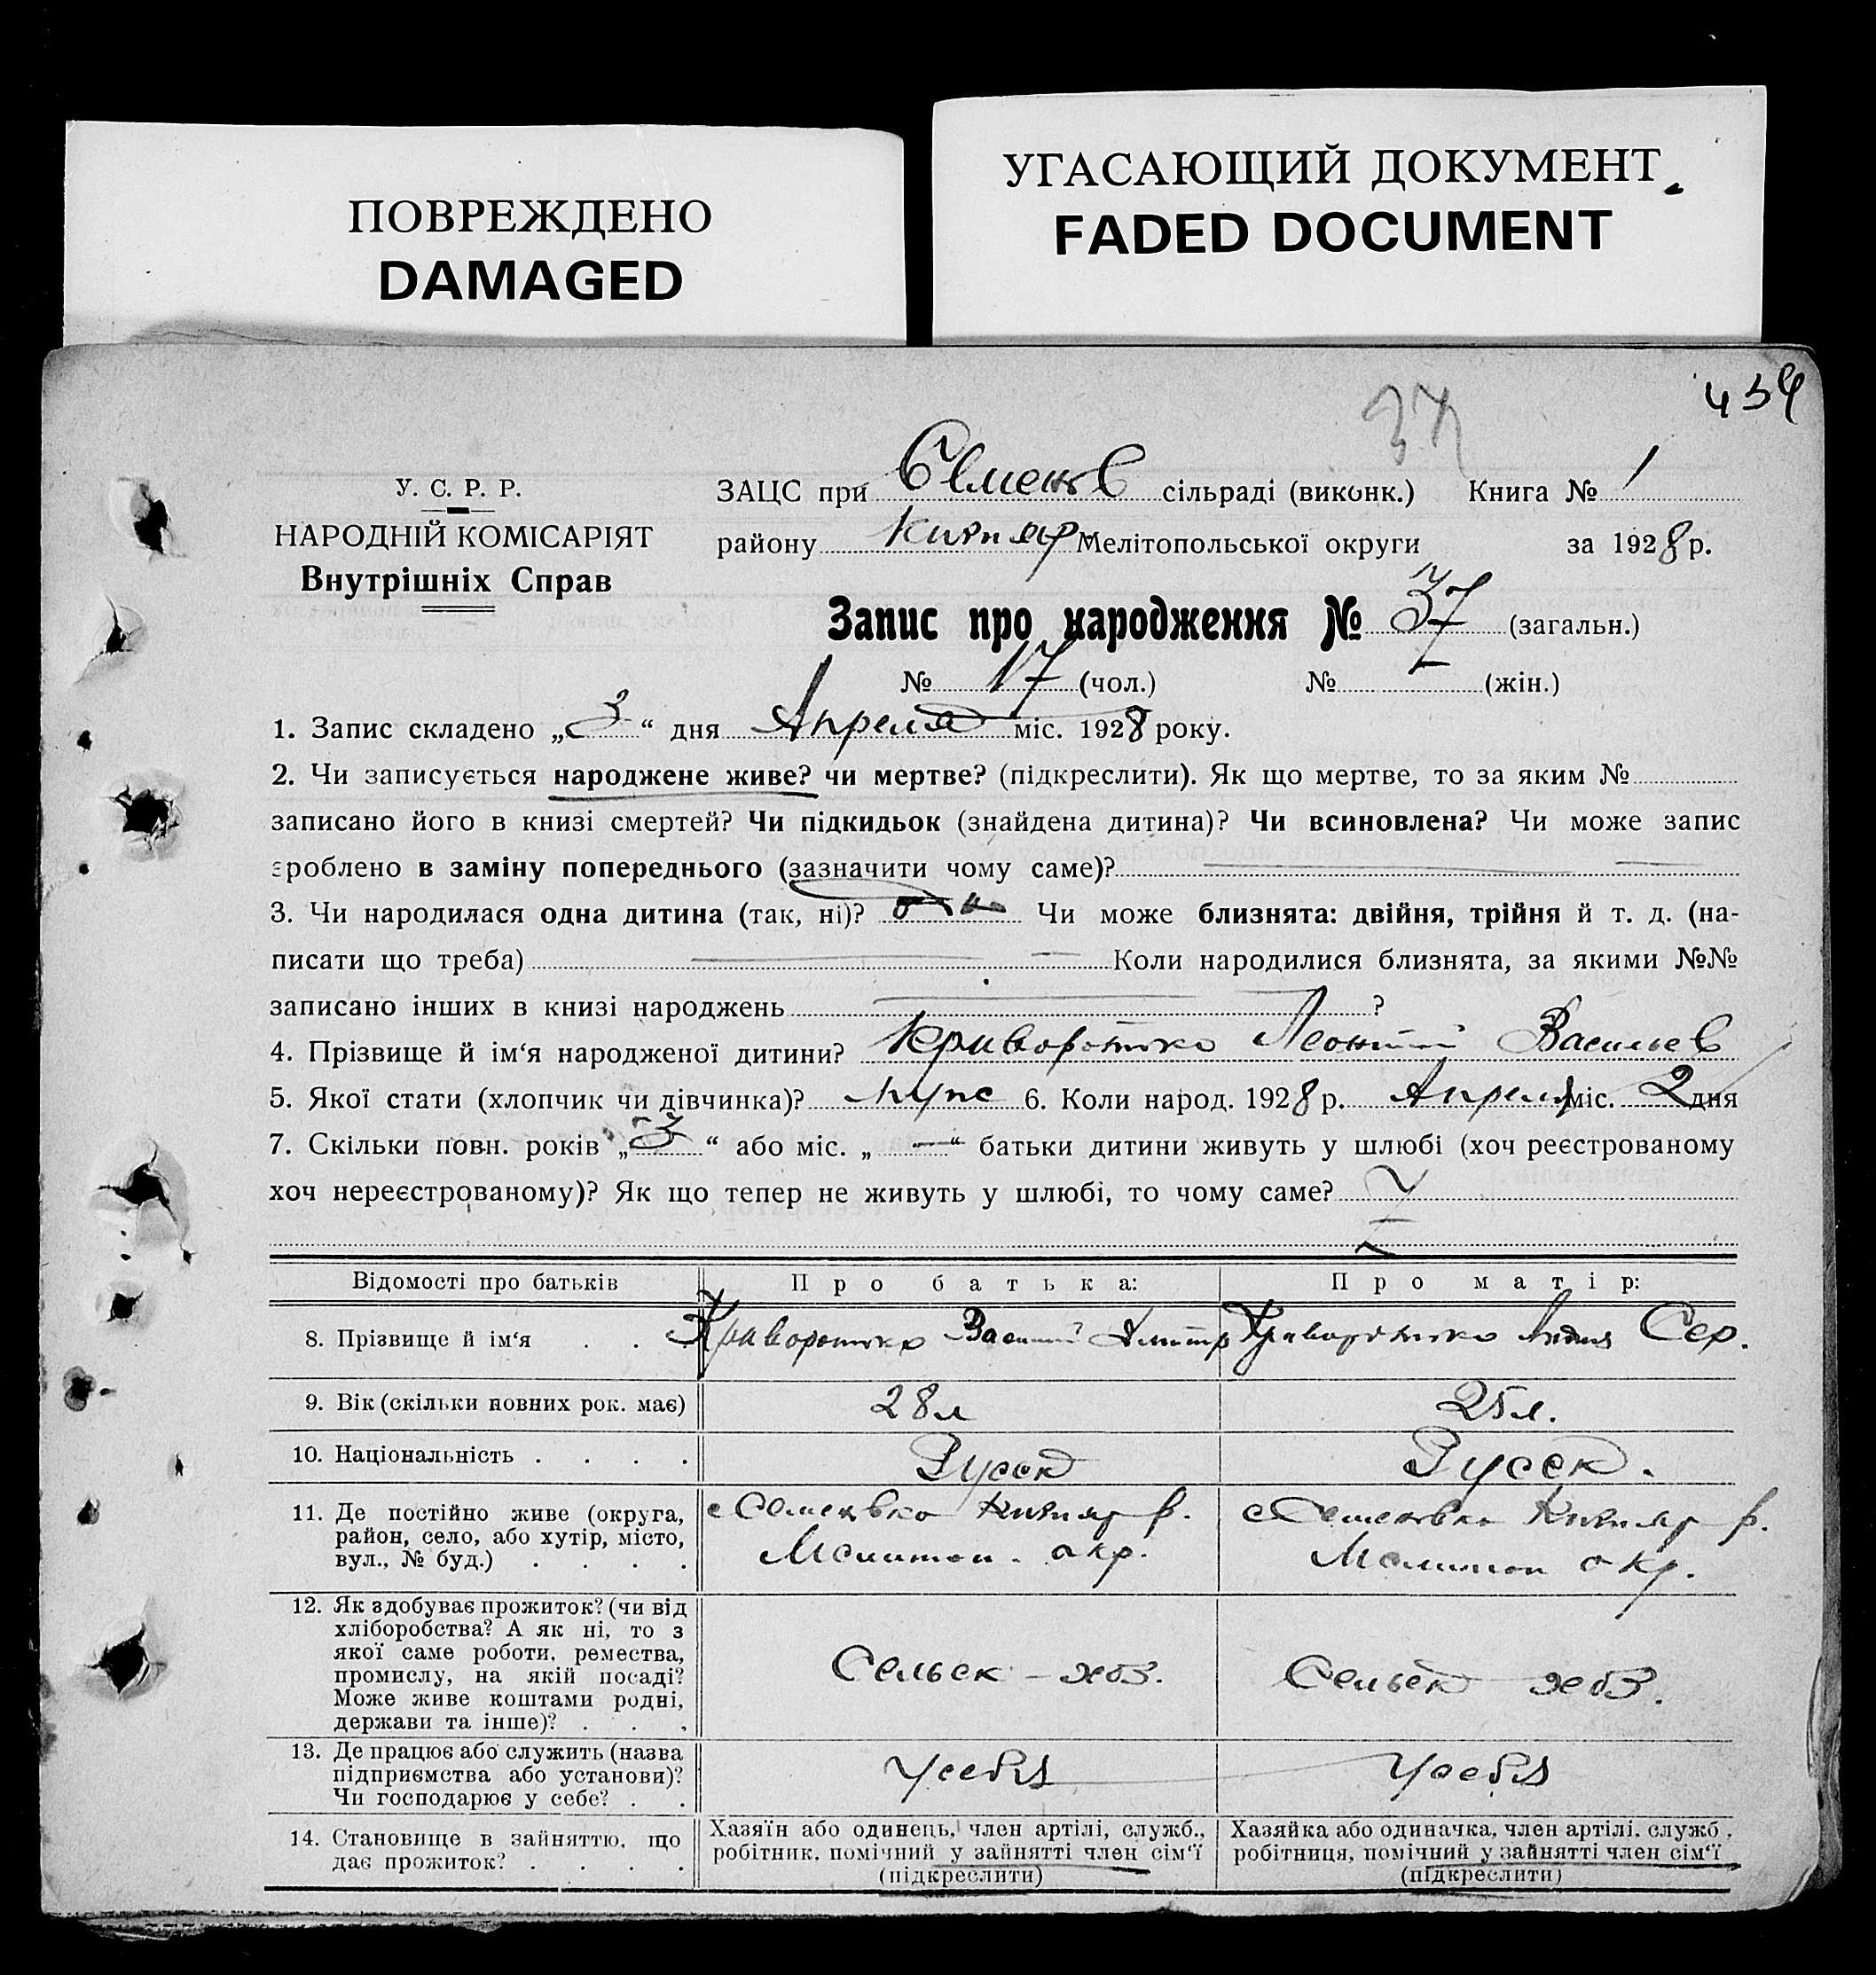 ПОВРЕЖДЕНО
DAMAGED
УГАСАЮЩИЙ ДОКУМЕНТ
FADED DOCUMENT
37
У. С. Р. Р.
НАРОДНІЙ КОМІСАРІЯТ
Внутрішніх Справ
ЗАЦС при Семенов сільраді (виконк.) Книга № 1
району Кизияр Мелітопольської округи за 1928 р.
Запис про народження № 37 (загальн.)
№ 17 (чол.) № (жін.)
1. Запис складено „3“ дня Апреля міс. 1928 року.
2. Чи записується народжене живе? чи мертве? (підкреслити). Як що мертве, то за яким №
записано його в книзі смертей? Чи підкидьок (знайдена дитина)? Чи всиновлена? Чи може запис
зроблено в заміну попереднього (зазначити чому саме)?
3. Чи народилася одна дитина (так, ні)? Чи може близнята: двійня, трійня й т. д. (на-
писати що треба) Коли народилися близнята, за якими №№
записано інших в книзі народжень ?
4. Прізвище й ім‘я народженої дитини? Криворотько Леонтий Васильев
5. Якої стати (хлопчик чи дівчинка)? 6. Коли народ. 1928 р. Апреля міс. 2 дня
7. Скільки повн. років „3“ або міс. „—“ батьки дитини живуть у шлюбі (хоч реєстрованому
хоч нереєстрованому)? Як що тепер не живуть у шлюбі, то чому саме?
Відомості про батьків
Про батька:
Про матір:
8. Прізвище й ім‘я . . .
Криворотько Василий Дмитр
Криворотько Сер.
9. Вік (скільки повних рок. має)
28 л
25 л.
10. Національність . . . .
Русск
Русск.
11. Де постійно живе (округа,
район, село, або хутір, місто,
вул., № буд.) . . . .
с Семеновка Кизияр р.
Мелитоп. окр.
с Семеновка Кизияр р.
Мелитоп окр.
12. Як здобуває прожиток? (чи від
хліборобства? А як ні, то з
якої саме роботи, ремества,
промислу, на якій посаді?
Може живе коштами родні,
держави та інше)? . . .
Сельск – хоз.
Сельск хоз.
13. Де працює або служить (назва
підприємства або установи)?
Чи господарює у себе? . .
У себя
У себя
14. Становище в зайняттю, що
дає прожиток? . . . .
Хазяїн або одинець, член артілі, служб.,
робітник, помічний у зайнятті член сім‘ї
(підкреслити)
Хазяйка або одиначка, член артілі, служб.,
робітниця, помічний у зайнятті член сім‘ї
(підкреслити)